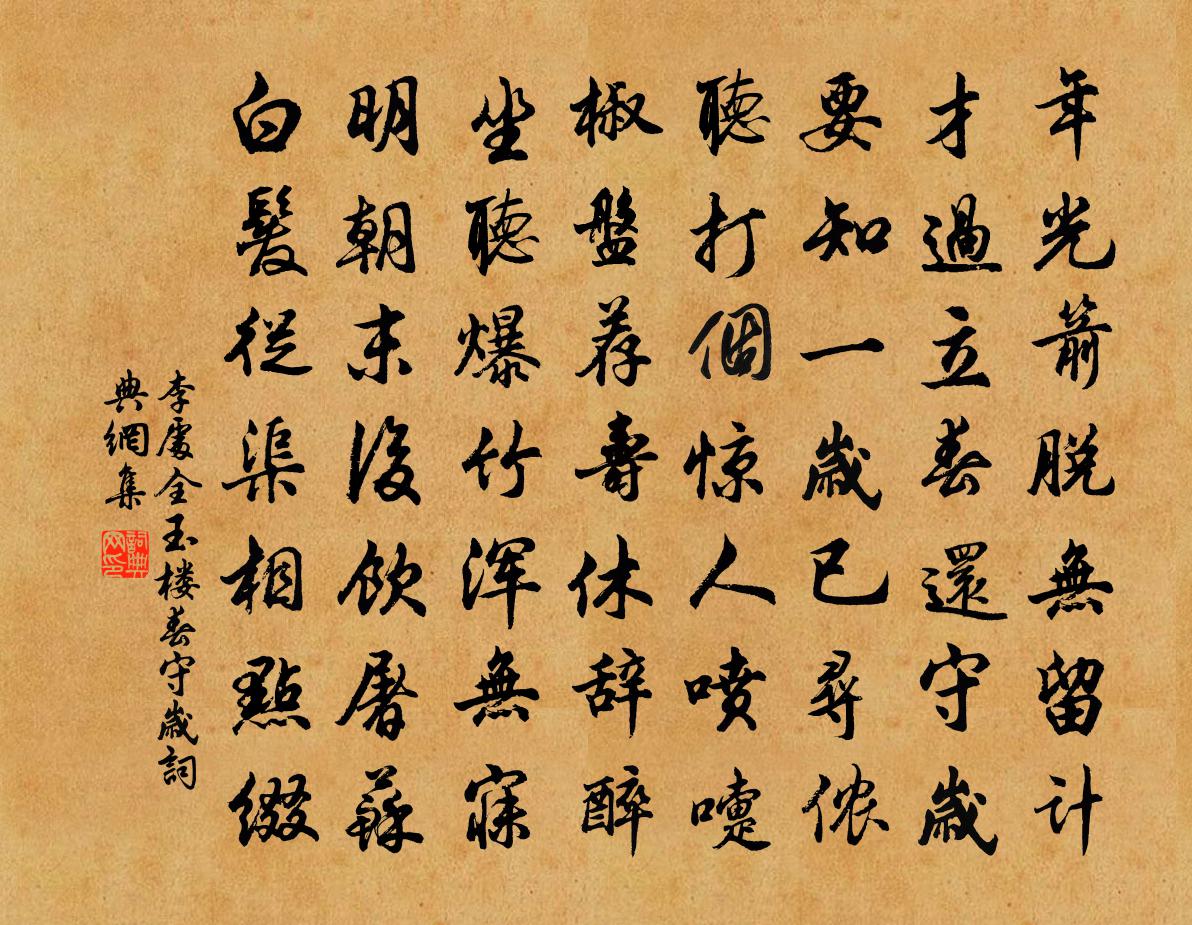 年光箭脱無留計
才過立春還守歲
要知一歲已尋侬
聽打個惊人喷嚏
椒盤荐壽休辞醉
坐聽爆竹浑無寐
明朝末後飲屠蘇
白髮從渠相點缀
李處全玉楼春守歲詞
典網集
詞典网印